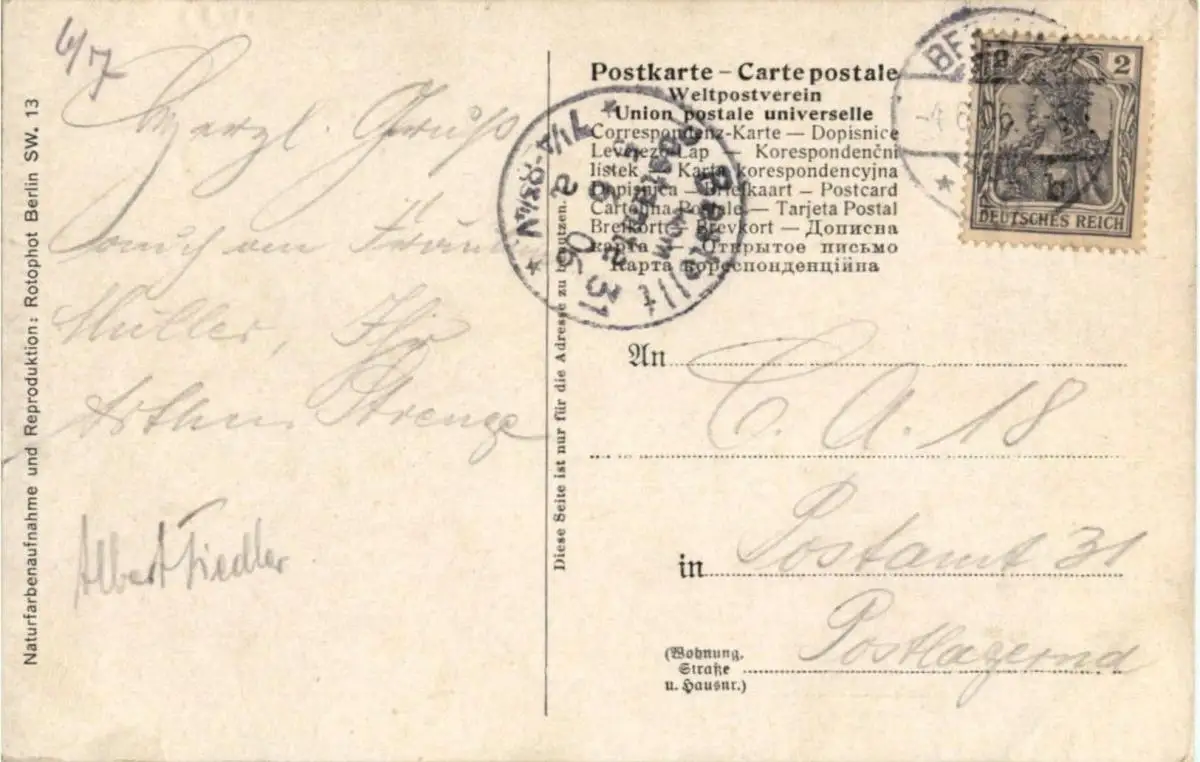 6/7
Herzl. Gruß
auch an Fräul.
Müller, Ihr
Arthur Strenge
Albert Fiedler
Naturfarbenaufnahme und Reproduktion: Rotophot Berlin SW. 13
Diese Seite ist nur für die Adresse zu benutzen.
Postkarte – Carte postale
Weltpostverein
Union postale universelle
Correspondenz-Karte — Dopisnice
Levelező-Lap — Korespondenční
listek — Karta korespondencyjna
Dopisnica — Briefkaart — Postcard
Cartolina Postale — Tarjeta Postal
Brefkort — Brevkort — Дописна
карта — Открытое письмо
Карта кореспонденційна
Bestellt
Postamt
31
06
2
DEUTSCHES REICH
An C. A. 18
in Postamt 31
Postlagernd
(Wohnung,
Straße
u. Hausnr.)